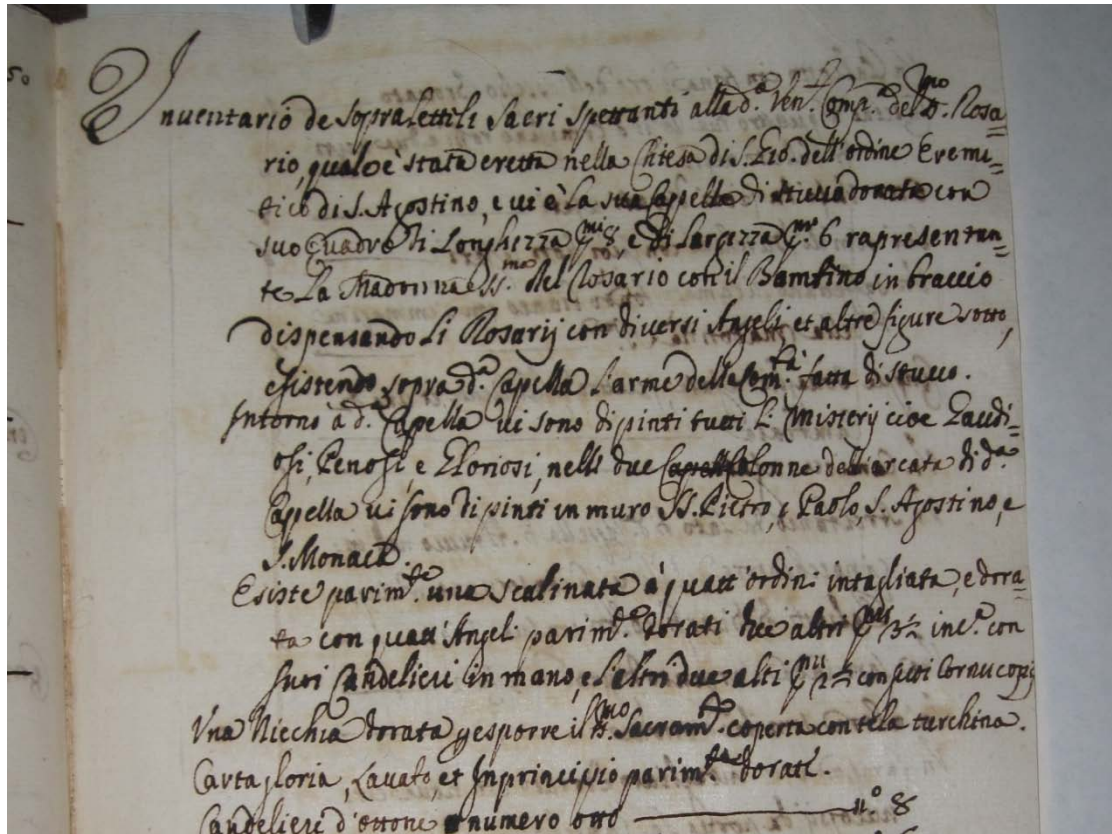 Inventario de sopralettili sacri spettanti alla d.a Ven. Comp.a del SS.mo Rosa=
rio, quale è stata eretta nella Chiesa di S. Gio. dell'ordine Eremi=
tico di S. Agostino, e vi è la sua Capella di stucco dorata con
suo Quadro di Longhezza p.mi 8 e di Largezza p.mi 6 rapresentan=
te La Madonna SS.ma del Rosario con il Bambino in braccio
dispensando Li Rosarij con diversi Angeli et altre figure sotto,
esistendo sopra d.a Capella l'arme della Com.tà fatta di stucco.
Intorno à d.a Capella vi sono dipinti tutti li Misterij cioe Gaudi=
osi, Penosi, e Gloriosi, nelle due Colonne dell'arcata di d.a
Capella vi sono dipinti in muro SS. Pietro, e Paolo, S. Agostino, e
S. Monaca
Esiste parim.te una scalinata à quatt'ordini intagliata, e dora=
ta con quatt'Angeli parim.te dorati due alti p.mi 3½ inc.a con
suoi Candelieri in mano, e l'altri due alti p.mi 2½ con suoi Cornucopij
Una Nicchia dorata p esporre il SS.mo Sacram.to coperta con tela turchina.
Carta gloria, Lavabo, et Inprincipio parim.te dorati.
Candelieri d'ottone numero otto n.o 8